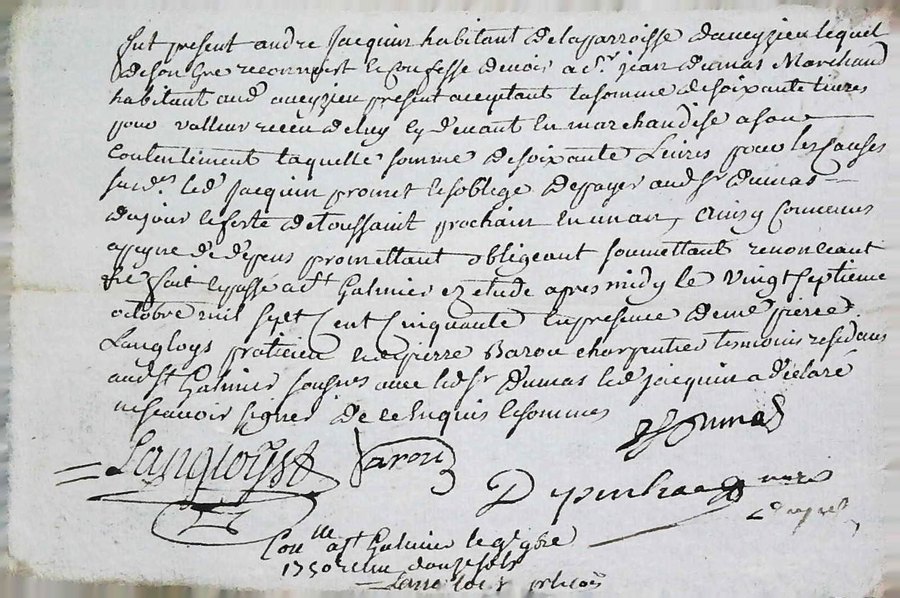 fut present andre Jacquin habitant de la parroisse d'aveyzieu lequel
de son gre reconnoist & confesse devoir a sr. jean Dumas Marchand
habitant aud. aveyzieu present acceptant la somme de soixante livres
pour valleur receu de luy cy devant en marchandise a son
contentement laquelle somme de soixante Livres pour les causes
susd.es led. Jacquin promet & soblige de payer aud. Sr. Dumas
du jour & feste de toussaint prochain en un an, ainsy convenus
a peyne de depens promettant obligeant soumettant renonceant
fait & passé a st. Galmier etude apres midy le vingt septieme
octobre mil sept Cent Cinquante en presence de me. pierre
Langloys praticien & de pierre Barou charpentier temoins residans
aud. st. Galmier signes avec led. Sr. Dumas led. jacquin a déclaré
ne scavoir signer de ce enquis & sommes
Dumas
Langloys Barou
nore
Conlle. a st. Galmier le
1750 douze sols